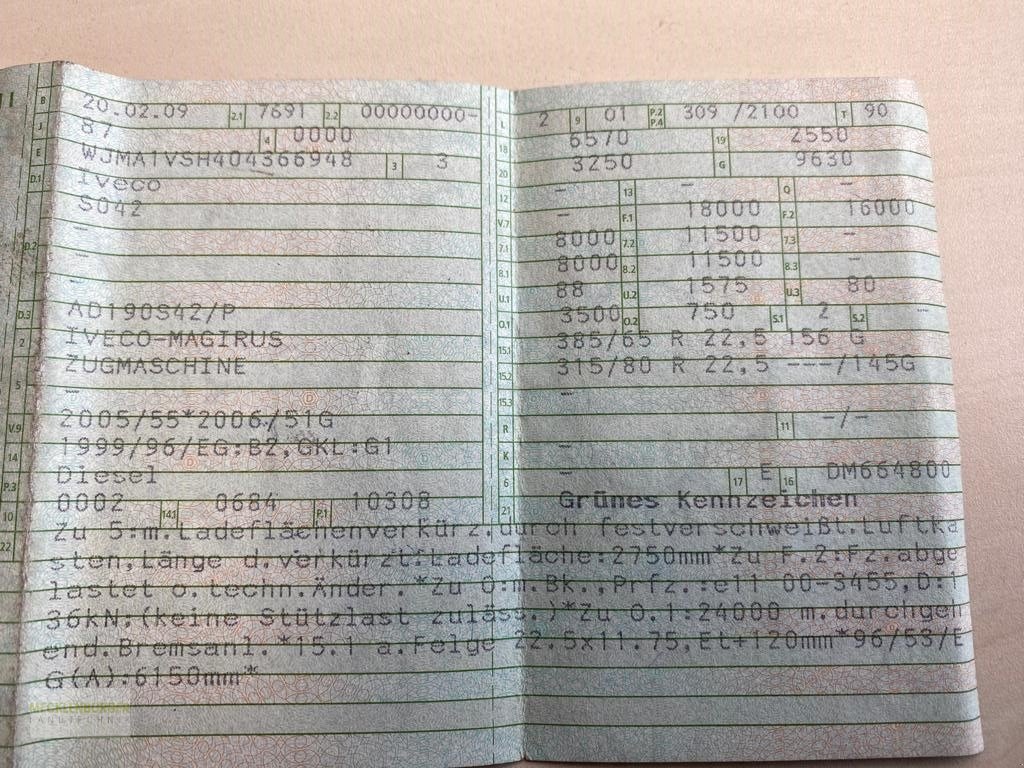 B 20.02.09 2.1 7691 2.2 00000000- L 2 9 01 P.2 P.4 309 /2100 T 90
J 87 4 0000 18 6570 19 2550
E WJMA1VSH404366948 3 3 20 3250 G 9630
D.1 Iveco 12 - 13 - Q -
S042 V.7 - F.1 18000 F.2 16000
D.2 - 7.1 8000 7.2 11500 7.3 -
- 8.1 8000 8.2 11500 8.3 -
- U.1 88 U.2 1575 U.3 80
D.3 AD190S42/P O.1 3500 O.2 750 S.1 2 S.2
2 IVECO-MAGIRUS 15.1 385/65 R 22,5 156 G
5 ZUGMASCHINE 15.2 315/80 R 22,5 ---/145G
- 15.3 -
V.9 2005/55*2006/51G R 11 -/-
14 1999/96/EG;B2,GKL:G1 K -
P.3 Diesel 6 - 17 E 16 DM664800
10 0002 14.1 0684 P.1 10308 21 Grünes Kennzeichen
22 Zu 5:m.Ladeflächenverkürz.durch festverschweißt.Luftka
sten,Länge d.verkürzt.Ladefläche:2750mm*Zu F.2:Fz.abge
lastet o.techn.Änder.*Zu O:m.Bk.,Prfz.:e11 00-3455,D:1
36kN;(keine Stützlast zuläss.)*Zu O.1:24000 m.durchgeh
end.Bremsanl.*15.1 a.Felge 22.5x11.75,Et+120mm*96/53/E
G(A):6150mm*
MECKLENBURGER
LANDTECHNIK